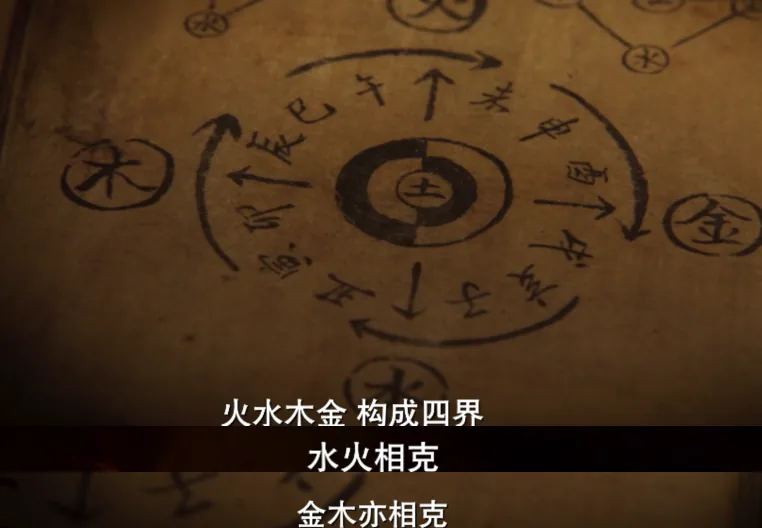 水
火
水
巳
午
未
辰
申
木
酉
土
卯
金
寅
戌
丑
子
亥
水
火水木金 构成四界
水火相克
金木亦相克